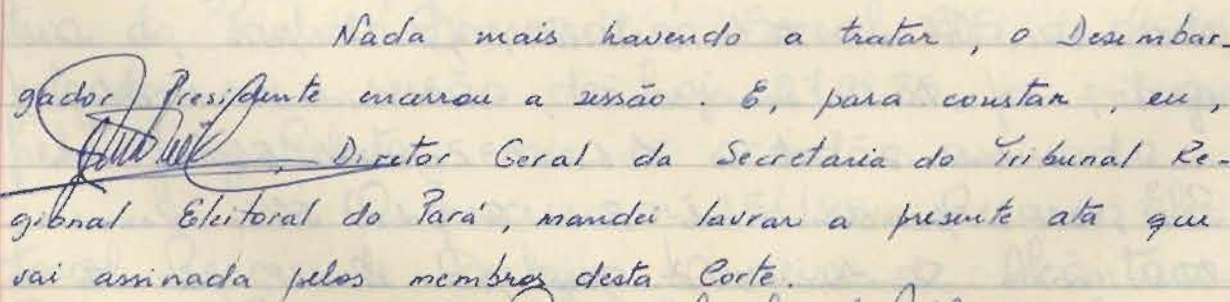 Nada mais havendo a tratar, o Desembar-
gador Presidente encerrou a sessão. E, para constar, eu,
, Diretor Geral da Secretaria do Tribunal Re-
gional Eleitoral do Pará, mandei lavrar a presente ata que
vai assinada pelos membros desta Corte.